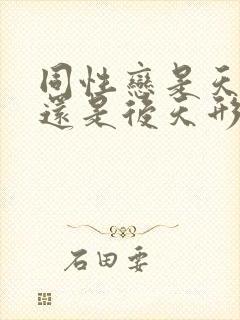 同性戀是天
還是後天形
石田要